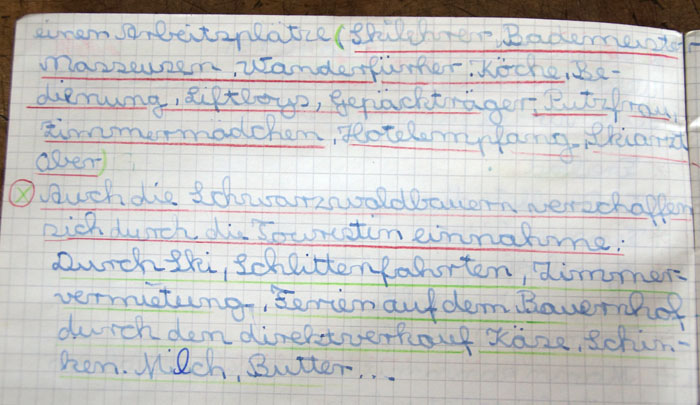 einen Arbeitsplätze (Skilehrer, Bademeister
Masseusen, Wanderführer. Köche, Be-
dienung, Liftboys, Gepächträger, Putzfrau,
Zimmermädchen, Hotelempfang, Skiarzt
ober)
x Auch die Schwarzwaldbauern verschaffen
sich durch die Touristin einnahme:
Durch Ski, Schlittenfahrten, Zimmer-
vermietung, Ferien auf dem Bauernhof
durch den direktverkauf Käse, Schin-
ken. Milch, Butter...